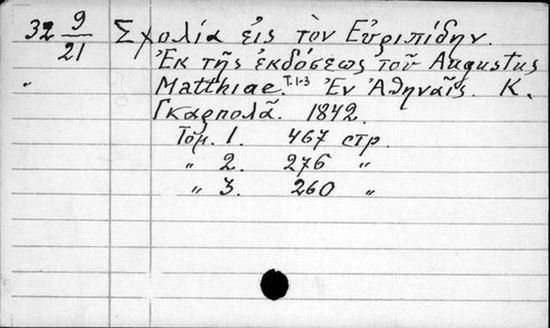 32 9/21 Σχολία εἰς τὸν Εὐριπίδην.
Ἐκ τῆς ἐκδόσεως τοῦ Augustus
" Matthiae. T.1-3 Ἐν Ἀθηναῖς. Κ.
Γκαρπολᾶ. 1842.
Τομ. 1. 467 στρ.
" 2. 276 "
" 3. 260 "